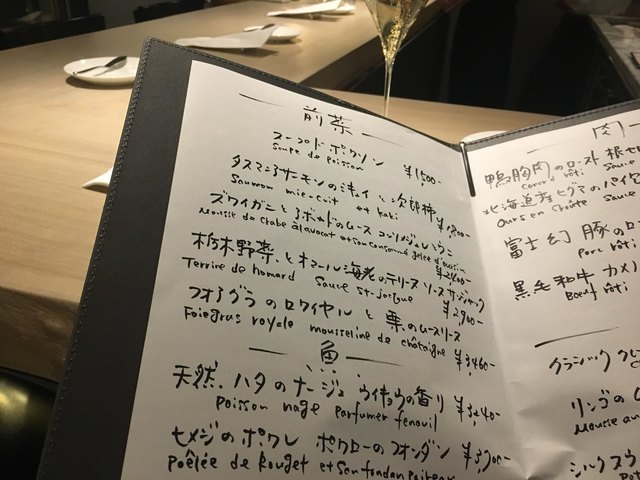 前菜
スープ ド ポワソン ¥1,500-
Soupe de poisson
タスマニアサーモンのミキュイ と 次郎柿
Saumon mie-cuit et kaki
ズワイガニと アボカドのムース コンソメジュレ ウニ
Mousse de crabe avocat et son consommé gelée d'oursin
栃木野菜 と オマール海老のテリーヌ ソース サンジャック ¥2,900-
Terrine de homard Sauce St-jacque
フォアグラ の ロワイヤル と 栗のムースリーヌ
Foiegras royale mousseline de châtaigne ¥3,460-
魚
天然 ハタ の ナージュ ウイキョウの香り ¥3,240-
Poisson nage parfumer fenouil
ヒメジの ポワレ ポワローの フォンダン ¥3,700-
Poêlée de Rouget et son fondan
肉
鴨胸肉のロースト
rôti Sauce
北海道産ヒグマのパイ
Ours en croûte Sauce
富士幻豚のロ
Porc rôti
黒毛和牛 カメノ
Bœuf rôti
クラシック クレ
リンゴの
Mousse
シルクスウ